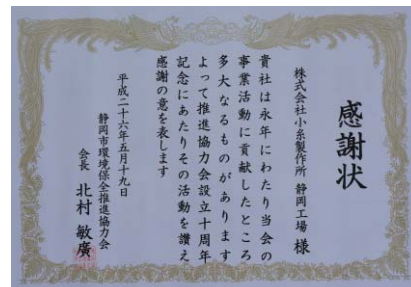 感謝状
株式会社小糸製作所 静岡工場 様
貴社は永年にわたり当会の
事業活動に貢献したところ
多大なるものがあります
よって推進協力会設立十周年
記念にあたりその活動を讃え
感謝の意を表します
平成二十六年五月十九日
静岡市環境保全推進協力会
会長 北村 敏廣